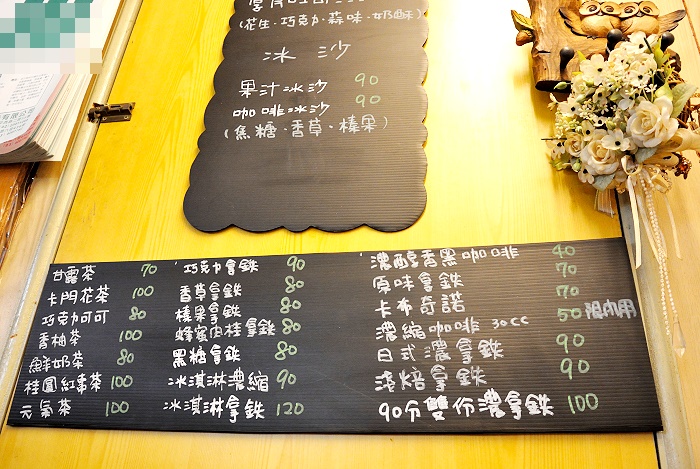 (花生·巧克力·蒜味·奶酥)
冰沙
果汁冰沙 90
咖啡冰沙 90
(焦糖·香草·榛果)
甘露茶 70
卡門花茶 100
巧克力可可 80
香柚茶 100
鮮奶茶 80
桂圓紅棗茶 100
元氣茶 100
巧克力拿鐵 90
香草拿鐵 80
榛果拿鐵 80
蜂蜜肉桂拿鐵 80
黑糖拿鐵 80
冰淇淋濃縮 90
冰淇淋拿鐵 120
濃醇香黑咖啡 40
原味拿鐵 70
卡布奇諾 70
濃縮咖啡 30cc 50 限內用
日式濃拿鐵 90
淺焙拿鐵 90
90分雙份濃拿鐵 100